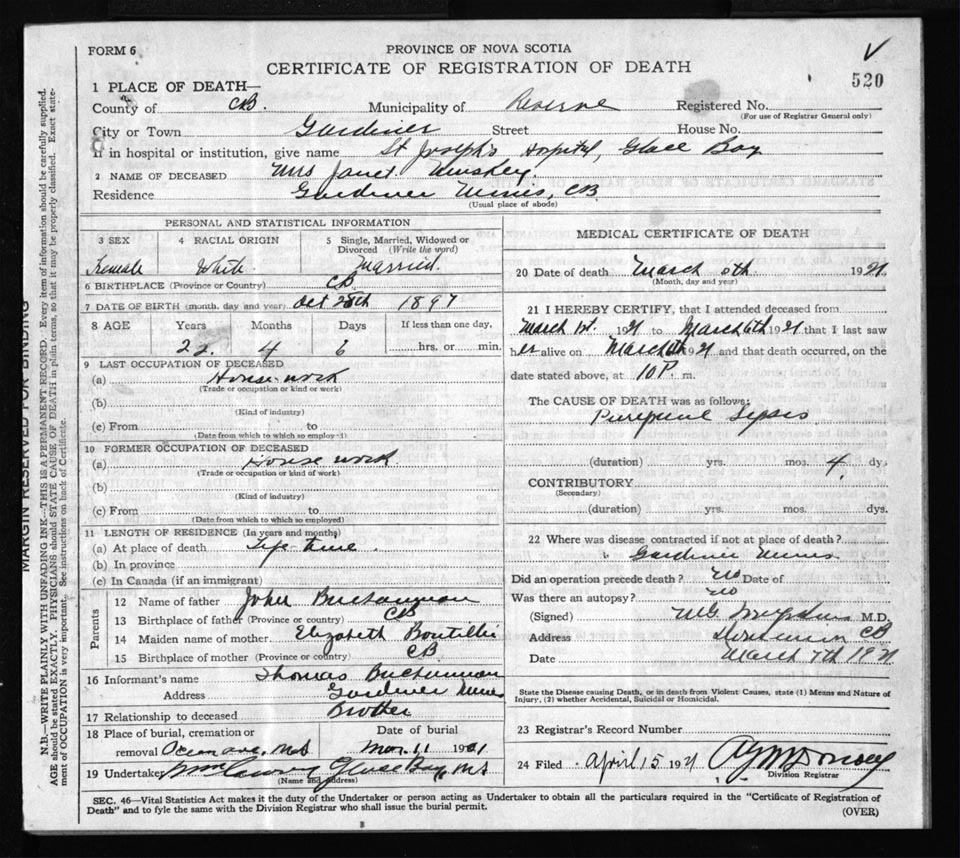 FORM 6
PROVINCE OF NOVA SCOTIA
CERTIFICATE OF REGISTRATION OF DEATH
520
1 PLACE OF DEATH—
County of CB. Municipality of Reserve Registered No.
(For use of Registrar General only)
City or Town Gardiner Street House No.
If in hospital or institution, give name St Joseph's Hospital, Glace Bay
2 NAME OF DECEASED Mrs Janet
Residence Gardiner Mines, CB.
(Usual place of abode)
PERSONAL AND STATISTICAL INFORMATION
3 SEX 4 RACIAL ORIGIN 5 Single, Married, Widowed or Divorced (Write the word)
Female White Married
6 BIRTHPLACE (Province or Country) CB
7 DATE OF BIRTH (month, day and year) Oct 28th 1897
8 AGE Years Months Days If less than one day,
22 4 6 hrs. or min.
9 LAST OCCUPATION OF DECEASED
(a) House work
(Trade or occupation or kind or work)
(b)
(Kind of industry)
(c) From to
(Date from which to which so employed)
10 FORMER OCCUPATION OF DECEASED
(a) House work
(Trade or occupation or kind of work)
(b)
(Kind of industry)
(c) From to
(Date from which to which so employed)
11 LENGTH OF RESIDENCE (In years and months)
(a) At place of death Life time
(b) In province
(c) In Canada (if an immigrant)
Parents
12 Name of father John Buchannan
13 Birthplace of father (Province or country) CB
14 Maiden name of mother Elizabeth Boutillie
15 Birthplace of mother (Province or country) CB
16 Informant's name Thomas Buchannan
Address Gardiner Mines
17 Relationship to deceased Brother
18 Place of burial, cremation or Date of burial
removal Mar. 11 1921
19 Undertaker Glace Bay, NS
(Name and address)
MEDICAL CERTIFICATE OF DEATH
20 Date of death March 6th 1921
(Month, day and year)
21 I HEREBY CERTIFY, that I attended deceased from
March 1st 1921 to March 6th 1921 that I last saw
her alive on March 6th 1921 and that death occurred, on the
date stated above, at 10 P. m.
The CAUSE OF DEATH was as follows:
Puerperal Sepsis
(duration) yrs. mos. 4 dys
CONTRIBUTORY
(Secondary)
(duration) yrs. mos. dys.
22 Where was disease contracted if not at place of death?
Gardiner Mines
Did an operation precede death? No Date of
Was there an autopsy? No
(Signed) M.D.
Address CB
Date March 7th 1921
State the Disease causing Death, or in death from Violent Causes, state (1) Means and Nature of
Injury, (2) whether Accidental, Suicidal or Homicidal.
23 Registrar's Record Number
24 Filed April 15 1921
Division Registrar
SEC. 46—Vital Statistics Act makes it the duty of the Undertaker or person acting as Undertaker to obtain all the particulars required in the "Certificate of Registration of
Death" and to fyle the same with the Division Registrar who shall issue the burial permit. (OVER)
MARGIN RESERVED FOR BINDING
N.B.—WRITE PLAINLY WITH UNFADING INK—THIS IS A PERMANENT RECORD. Every item of information should be carefully supplied.
AGE should be stated EXACTLY. PHYSICIANS should STATE CAUSE OF DEATH in plain terms, so that it may be properly classified. Exact state-
ment of OCCUPATION is very important. See instructions on back of Certificate.